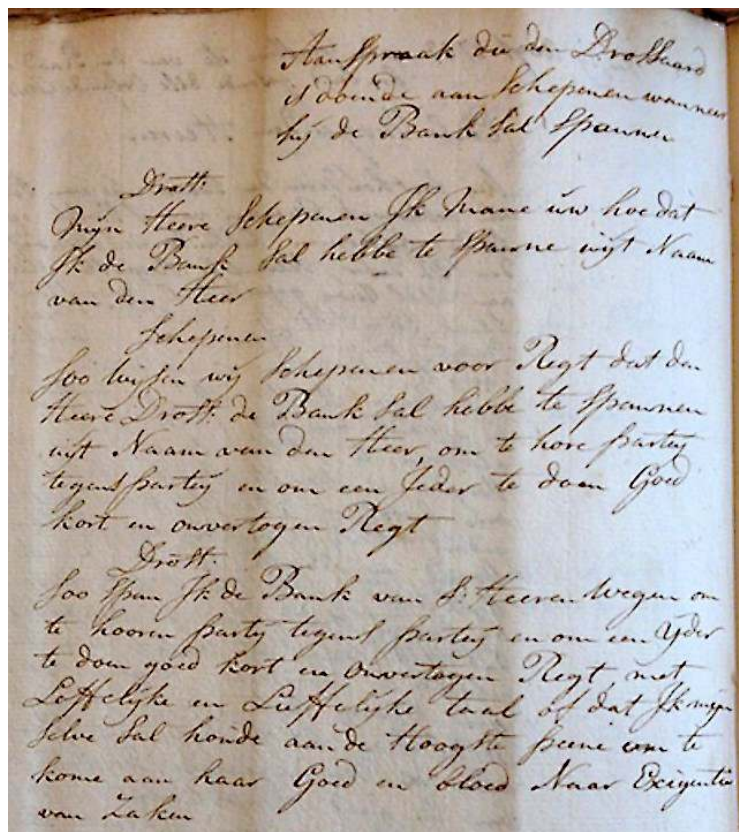 Aanspraak die den Drossaard
is doende aan Schepenen wanneer
hij de Bank sal Spannen
Drost:
Mijn Heere Schepenen Ik Mane úw hoe dat
Ik de Bank sal hebbe te Spanne uijt Naam
van den Heer
Schepenen
Soo wijsen wij Schepenen voor Regt dat den
Heere Drost: de Bank sal hebbe te Spannen
uijt Naam van den Heer, om te hore partij
tegens partij en om een Jeder te doen Goed
kort en onvertogen Regt
Drost:
Soo Span Ik de Bank van S: Heeren Wegen om
te hooren partij tegens partij en om een Yder
te doen goed kort en onvertogen Regt, met
Leffelijke en Lieffelijke taal of dat Ik mijn
selve sal houde aan de Hoogste peene om te
kome aan haar Goed en bloed Naar Exigentie
van Zaken